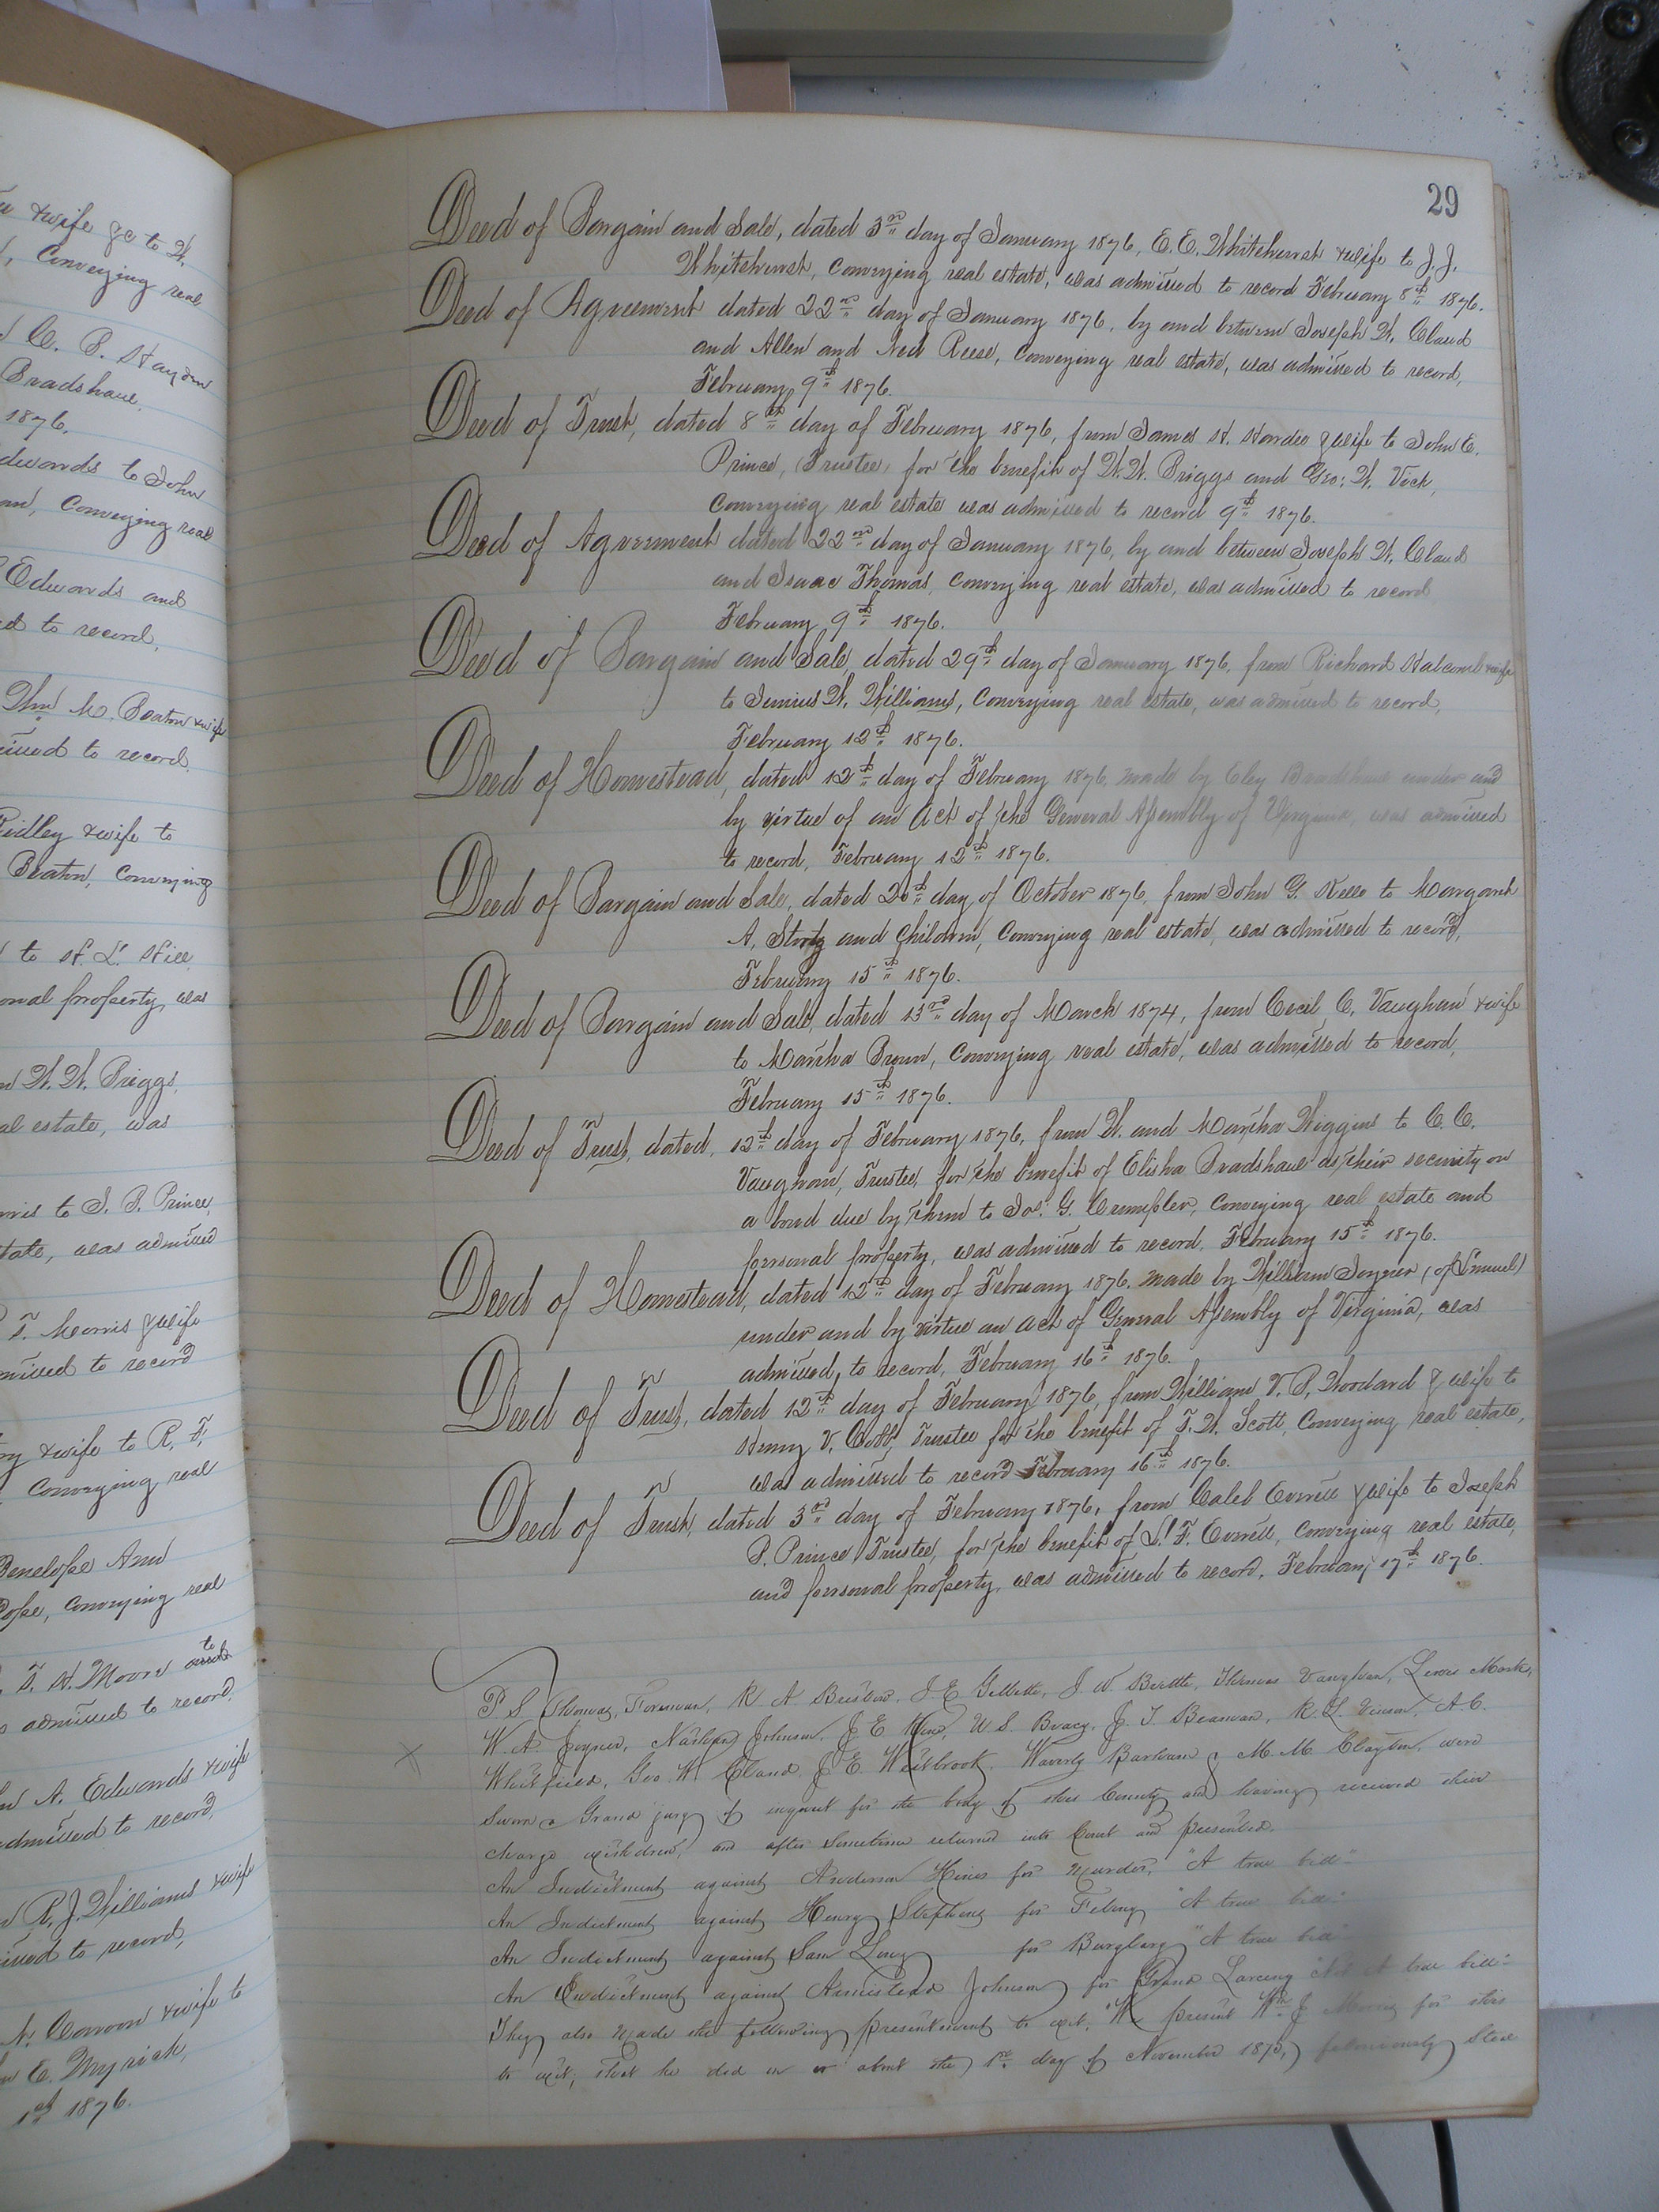 & wife &c to W.
, Conveying real
C. B. Hayden
Bradshaw.
1876.
Edwards to John
an, Conveying real
Edwards and
ed to record,
Thos M. Beaton & wife
itted to record.
Ridley & wife to
Beaton, Conveying
to H. L. Hill
onal property, was
W. W. Briggs,
al estate, was
rris to J. B. Prince,
tate, was admitted
T. Morris & wife
mitted to record
ry & wife to R. F.
Conveying real
Penelope Ann
Pope, Conveying real
to
T. H. Moore
admitted to record.
A. Edwards & wife
admitted to record,
R. J. Williams & wife
itted to record,
N. Corroon & wife to
E. Myrick,
1st 1876.
29
Deed of Bargain and Sale, dated 3rd day of January 1876, E. E. Whitehurst & wife to J. J.
Whitehurst, Conveying real estate, was admitted to record February 8th 1876.
Deed of Agreement dated 22nd day of January 1876, by and between Joseph W. Claud
and Allen and Ned Reese, Conveying real estate, was admitted to record,
February 9th 1876.
Deed of Trust, dated 8th day of February 1876, from James H. Harder & wife to John E.
Prince, (Trustee) for the benefit of W. W. Briggs and Geo: W. Vick,
Conveying real estate was admitted to record 9th 1876.
Deed of Agreement dated 22nd day of January 1876, by and between Joseph W. Claud
and Isaac Thomas, Conveying real estate, was admitted to record
February 9th 1876.
Deed of Bargain and Sale, dated 29th day of January 1876, from Richard Halcomb & wife
to Junius W. Williams, Conveying real estate, was admitted to record,
February 12th 1876.
Deed of Homestead, dated 12th day of February 1876, made by Eley Bradshaw under and
by virtue of an Act of the General Assembly of Virginia, was admitted
to record, February 12th 1876.
Deed of Bargain and Sale, dated 20th day of October 1876, from John G. Kello to Margaret
A. and Children, Conveying real estate, was admitted to record,
February 15th 1876.
Deed of Bargain and Sale, dated 13rd day of March 1874, from Cecil C. Vaughan & wife
to Martha Brown, Conveying real estate, was admitted to record,
February 15th 1876.
Deed of Trust, dated, 12th day of February 1876, from W. and Martha Wiggins to C. C.
Vaughan, Trustee, for the benefit of Elisha Bradshaw as their security on
a bond due by them to Jos: G. Crumpler, Conveying real estate and
personal property, was admitted to record, February 15th 1876.
Deed of Homestead, dated 12th day of February 1876, made by William Joyner (of Lemuel)
under and by virtue an act of General Assembly of Virginia, was
admitted, to record, February 16th 1876.
Deed of Trust, dated 12th day of February 1876, from William V. P. Woodard & wife to
Henry V. Cobb, Trustee for the benefit of T. W. Scott, Conveying real estate,
was admitted to record February 16th 1876.
Deed of Trust, dated 3rd day of February 1876, from Caleb Everett & wife to Joseph
B. Prince Trustee, for the benefit of L. F. Everett, Conveying real estate,
and personal property, was admitted to record, February 17th 1876.
P S Thomas, Foreman, R A Bristow, J E Gillette, J W Beatle, Thomas Vaughan, Lewis Monk,
W. A. Joyner, Nathan Johnson, J E W. S. Bracy, J. T. Beaman, R. L. Vinson, A. C.
Whitfield, Geo W Claud, J E Westbrook, Waverly Barham & M. M. Clayton, were
Sworn a Grand jury of inquest for the body of this County and having received their
charge withdrew, and after sometime returned into Court and presented.
An Indictment against Anderson Hines for Murder, "A true bill"
An Indictment against Henry Stephens for Felony "A true bill"
An Indictment against Sam Long for Burglary "A true bill"
An Indictment against Armistead Johnson for Grand Larceny "Not A true bill"
They also made the following presentment to wit: "We present Wm J for this
to wit; that he did on or about the 1st day of November 1875, feloniously steal